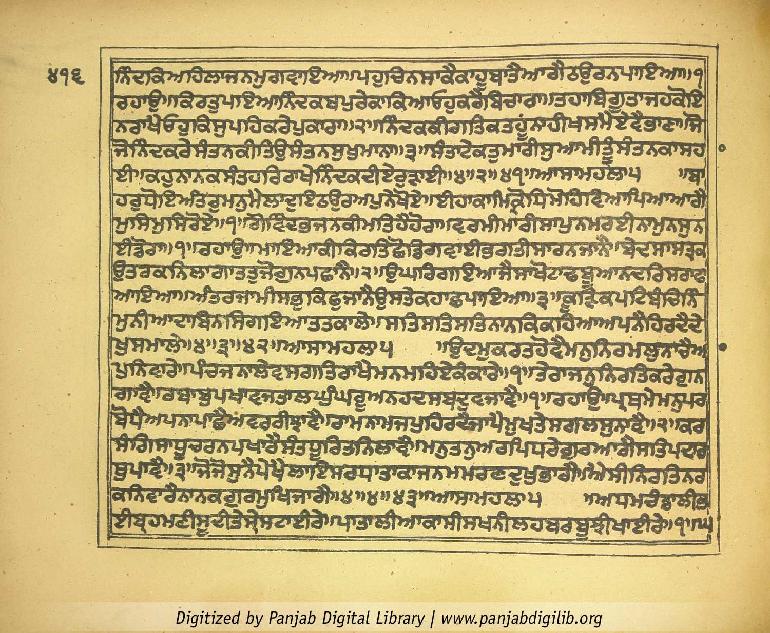 ੪੧੬
ਨਿੰਦਕਿਅਹਿਲਾਜਨਮੁਗਵਾਇਆ॥ਪਹੁਚਿਨਸਾਕੈਕਾਹੂਬਾਤੈਆਗੈਠਉਰਨਪਾਇਆ॥੧
ਰਹਾਉ॥ਕਿਰਤੁਪਾਇਆਨਿੰਦਕਬਪੁਰੇਕਾਕਿਆਓਹੁਕਰੈਬਿਚਾਰਾ॥ਤਹਾਬਿਗੂਤਾਜਹਕੋਇ
ਨਰਾਖੈਓਹੁਕਿਸੁਪਹਿਕਰੇਪੁਕਾਰਾ॥੨॥ਨਿੰਦਕਕੀਗਤਿਕਤਹੂੰਨਾਹੀਖਸਮੈਏਵੈਭਾਣਾ॥ਜੋ
ਜੋਨਿੰਦਕਰੇਸੰਤਨਕੀਤਿਉਸੰਤਨਸੁਖੁਮਾਨਾ॥੩॥ਸੰਤਾਟੇਕਤੁਮਾਰੀਸੁਆਮੀਤੂੰਸੰਤਨਕਾਸਹ
ਈ॥ਕਹੁਨਾਨਕਸੰਤਹਰਿਰਾਖੇਨਿੰਦਕਦੀਏਰੁੜਾਈ॥੪॥੨॥੪੧॥ਆਸਾਮਹਲਾ੫ ॥ਬਾ
ਹਰੁਧੋਇਅੰਤਰੁਮਨੁਮੈਲਾਦੁਇਠਉਰਅਪੁਨੇਖੋਏ॥ਈਹਾਕਾਮਿਕ੍ਰੋਧਿਮੋਹਿਵਿਆਪਿਆਆਗੈ
ਮੁਸਿਮੁਸਿਰੋਏ॥੧॥ਗੋਵਿੰਦਭਜਨਕੀਮਤਿਹੈਹੋਰਾ॥ਵਰਮੀਮਾਰੀਸਾਪੁਨਮਰਈਨਾਮੁਨਸੁਨ
ਈਡੋਰਾ॥੧॥ਰਹਾਉ॥ਮਾਇਆਕੀਕਿਰਤਿਛੋਡਿਗਵਾਈਭਗਤੀਸਾਰਨਜਾਨੈ॥ਬੇਦਸਾਸਤ੍ਰਕ
ਉਤਰਕਨਿਲਾਗਾਤਤੁਜੋਗੁਨਪਛਾਨੈ॥੨॥ਉਘਰਿਗਇਆਜੈਸਾਖੋਟਾਢਬੂਆਨਦਰਿਸਰਾਫਾ
ਆਇਆ॥ਅੰਤਰਜਾਮੀਸਭੁਕਿਛੁਜਾਨੈਉਸਤੇਕਹਾਛਪਾਇਆ॥੩॥ਕੂੜਿਕਪਟਿਬੰਚਿਨਿੰ
ਮੁਨੀਆਦਾਬਿਨਸਿਗਇਆਤਤਕਾਲੇ॥ਸਤਿਸਤਿਸਤਿਨਾਨਕਿਕਹਿਆਅਪਨੈਹਿਰਦੈਦੇ
ਖੁਸਮਾਲੇ॥੪॥੩॥੪੨॥ਆਸਾਮਹਲਾ੫ ॥ਉਦਮੁਕਰਤਹੋਵੈਮਨੁਨਿਰਮਲੁਨਾਚੈਆ
ਪੁਨਿਵਾਰੇ॥ਪੰਚਜਨਾਲੇਵਸਗਤਿਰਾਖੈਮਨਮਹਿਏਕੰਕਾਰੇ॥੧॥ਤੇਰਾਜਨੁਨਿਰਤਿਕਰੇਗੁਨ
ਗਾਵੈ॥ਰਬਾਬੁਪਖਾਵਜਤਾਲਘੁੰਘਰੂਅਨਹਦਸਬਦੁਵਜਾਵੈ॥੧॥ਰਹਾਉ॥ਪ੍ਰਥਮੇਮਨੁਪਰ
ਬੋਧੈਅਪਨਾਪਾਛੈਅਵਰਰੀਝਾਵੈ॥ਰਾਮਨਾਮਜਪੁਹਿਰਦੈਜਾਪੈਮੁਖਤੇਸਗਲਸੁਨਾਵੈ॥੨॥ਕਰ
ਸੰਗਿਸਾਧੂਚਰਨਪਖਾਰੈਸੰਤਧੂਰਿਤਨਿਲਾਵੈ॥ਮਨੁਤਨੁਅਰਪਿਧਰੇਗੁਰਆਗੈਸਤਿਪਦਾਰ
ਥੁਪਾਵੈ॥੩॥ਜੋਜੋਸੁਨੈਪੇਖੈਲਾਇਸਰਧਾਤਾਕਾਜਨਮਮਰਣਦੁਖੁਭਾਗੈ॥ਐਸੀਨਿਰਤਿਨਰ
ਕਨਿਵਾਰੈਨਾਨਕਗੁਰਮੁਖਿਜਾਗੈ॥੪॥੪॥੪੩॥ਆਸਾਮਹਲਾ੫ ॥ਅਧਮਚੰਡਾਲੀਭ
ਈਬ੍ਰਹਮਣੀਸੂਦੀਤੇਸ੍ਰੇਸਟਾਈਰੇ॥ਪਾਤਾਲੀਆਕਾਸੀਸਖਨੀਲਹਬਰਬੂਝੀਖਾਈਰੇ॥੧॥ਘ
Digitized by Panjab Digital Library | www.panjabdigilib.org